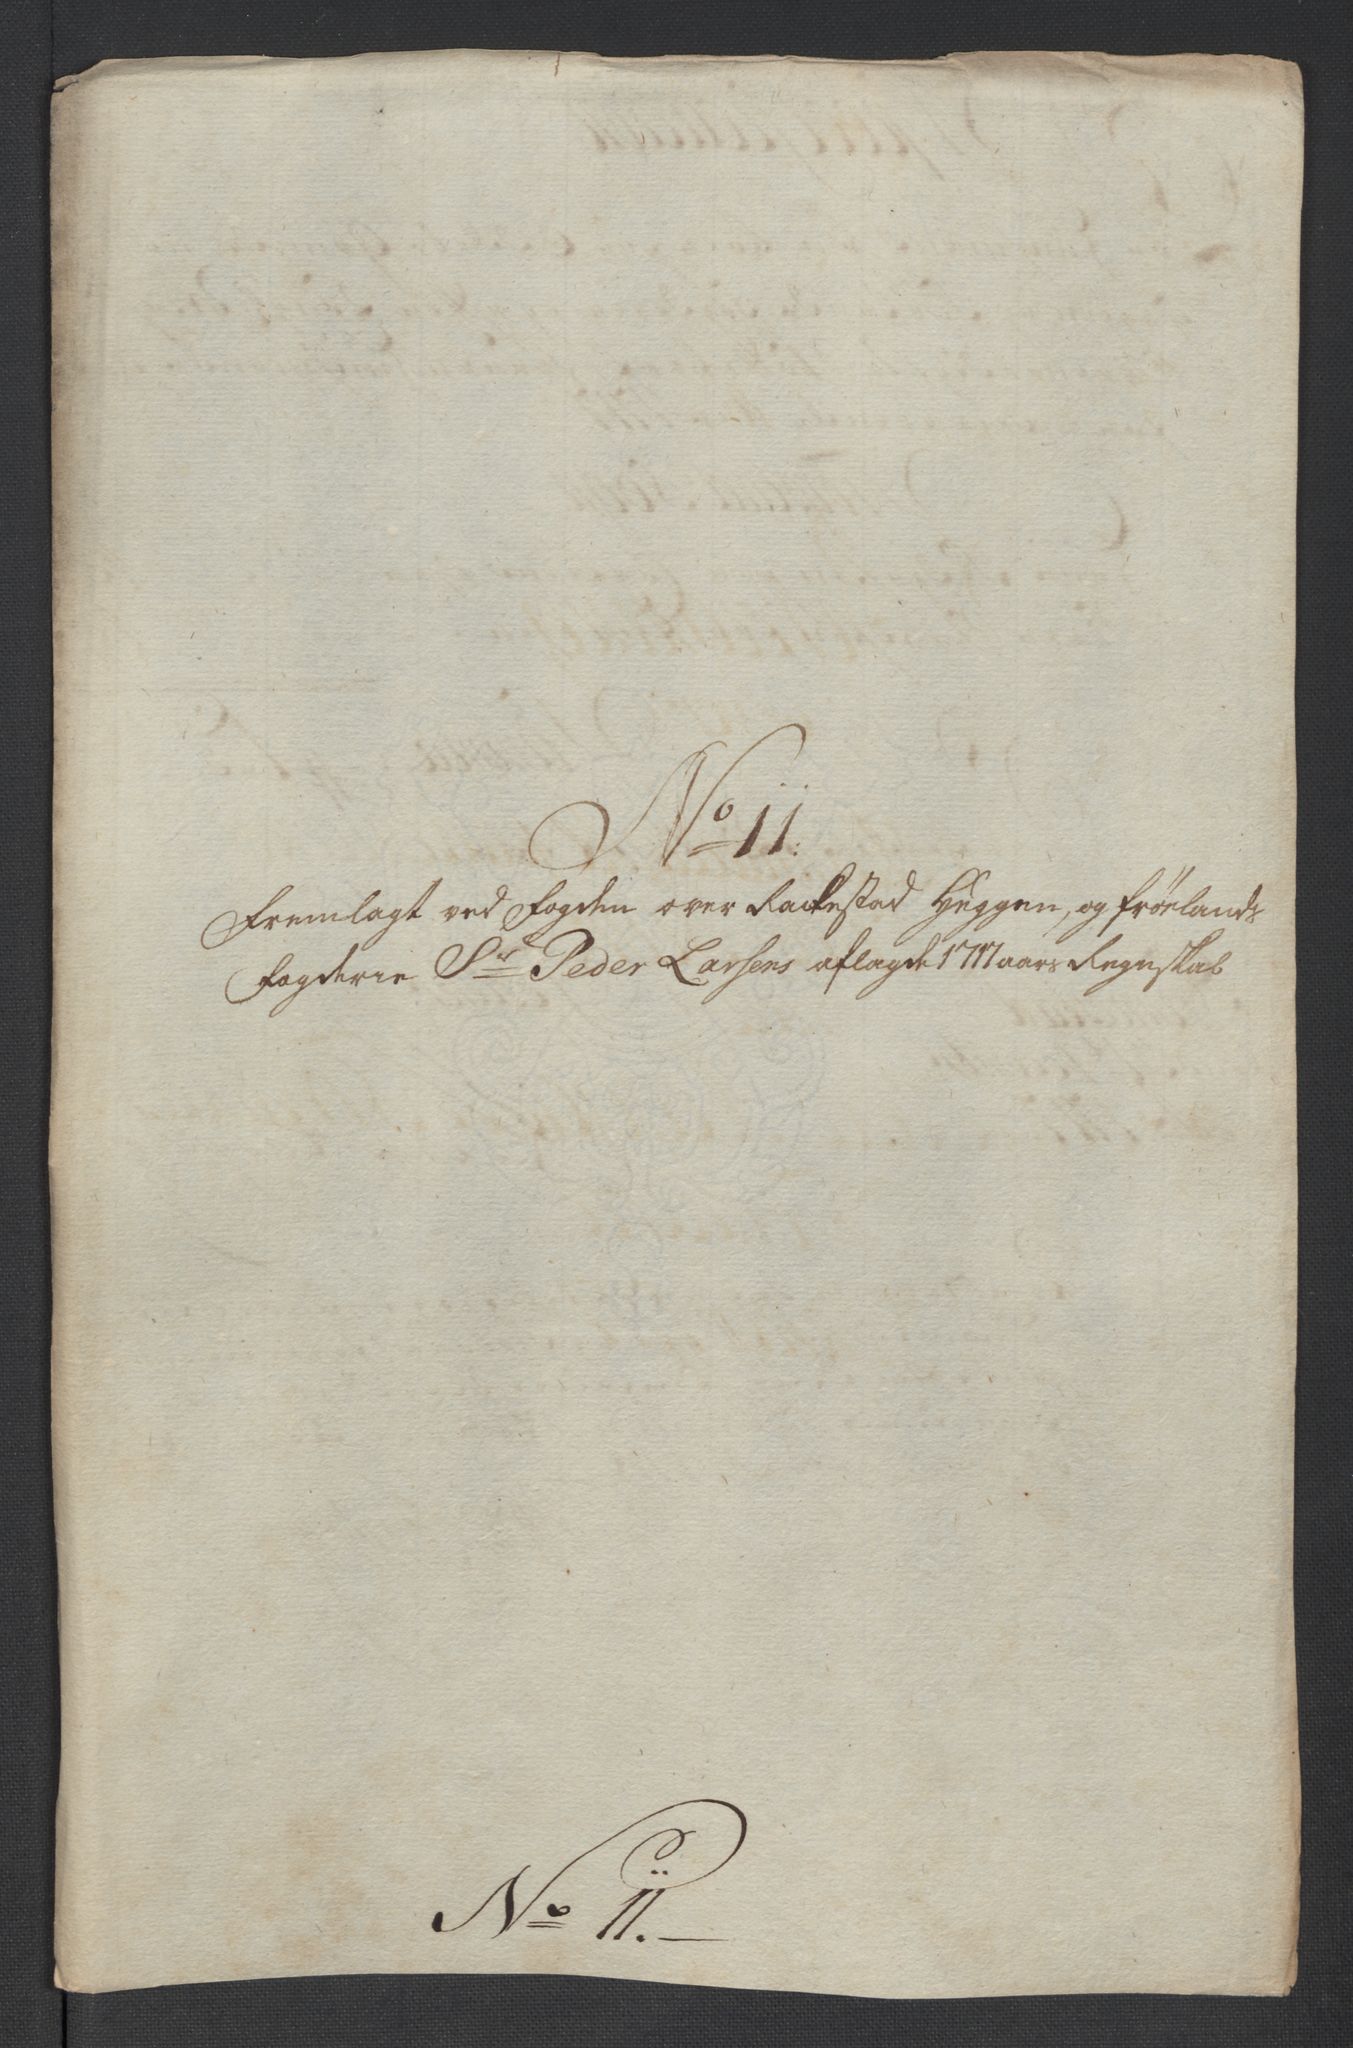 No 11.
Fremlagt ved Fogden over Rackestad Heggen, og Frölands
Fogderie Sr Peder Larsens aflagde 1717 aars Regnskab
No 11.